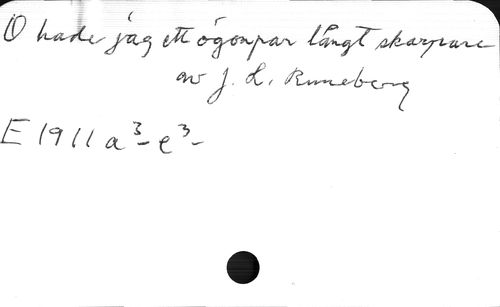 O hade jag ett ögonpar långt skarpare
av J. L. Runeberg
E 1911 a³- e³-